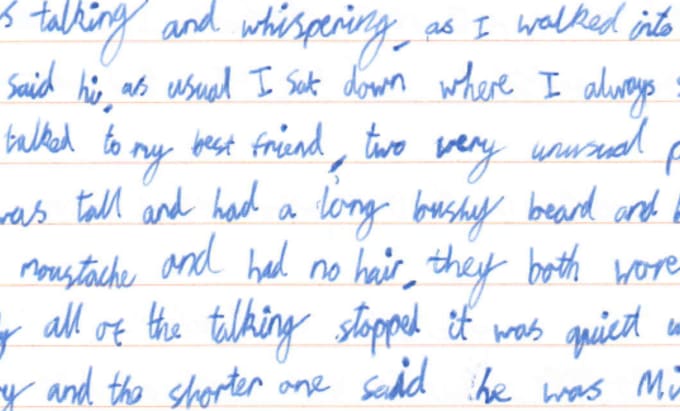 talking and whispering, as I walked into
said hi, as usual I sat down where I always
talked to my best friend, two very unusual
was tall and had a long bushy beard and
moustache and had no hair, they both wore
all of the talking stopped it was quiet
and the shorter one said he was